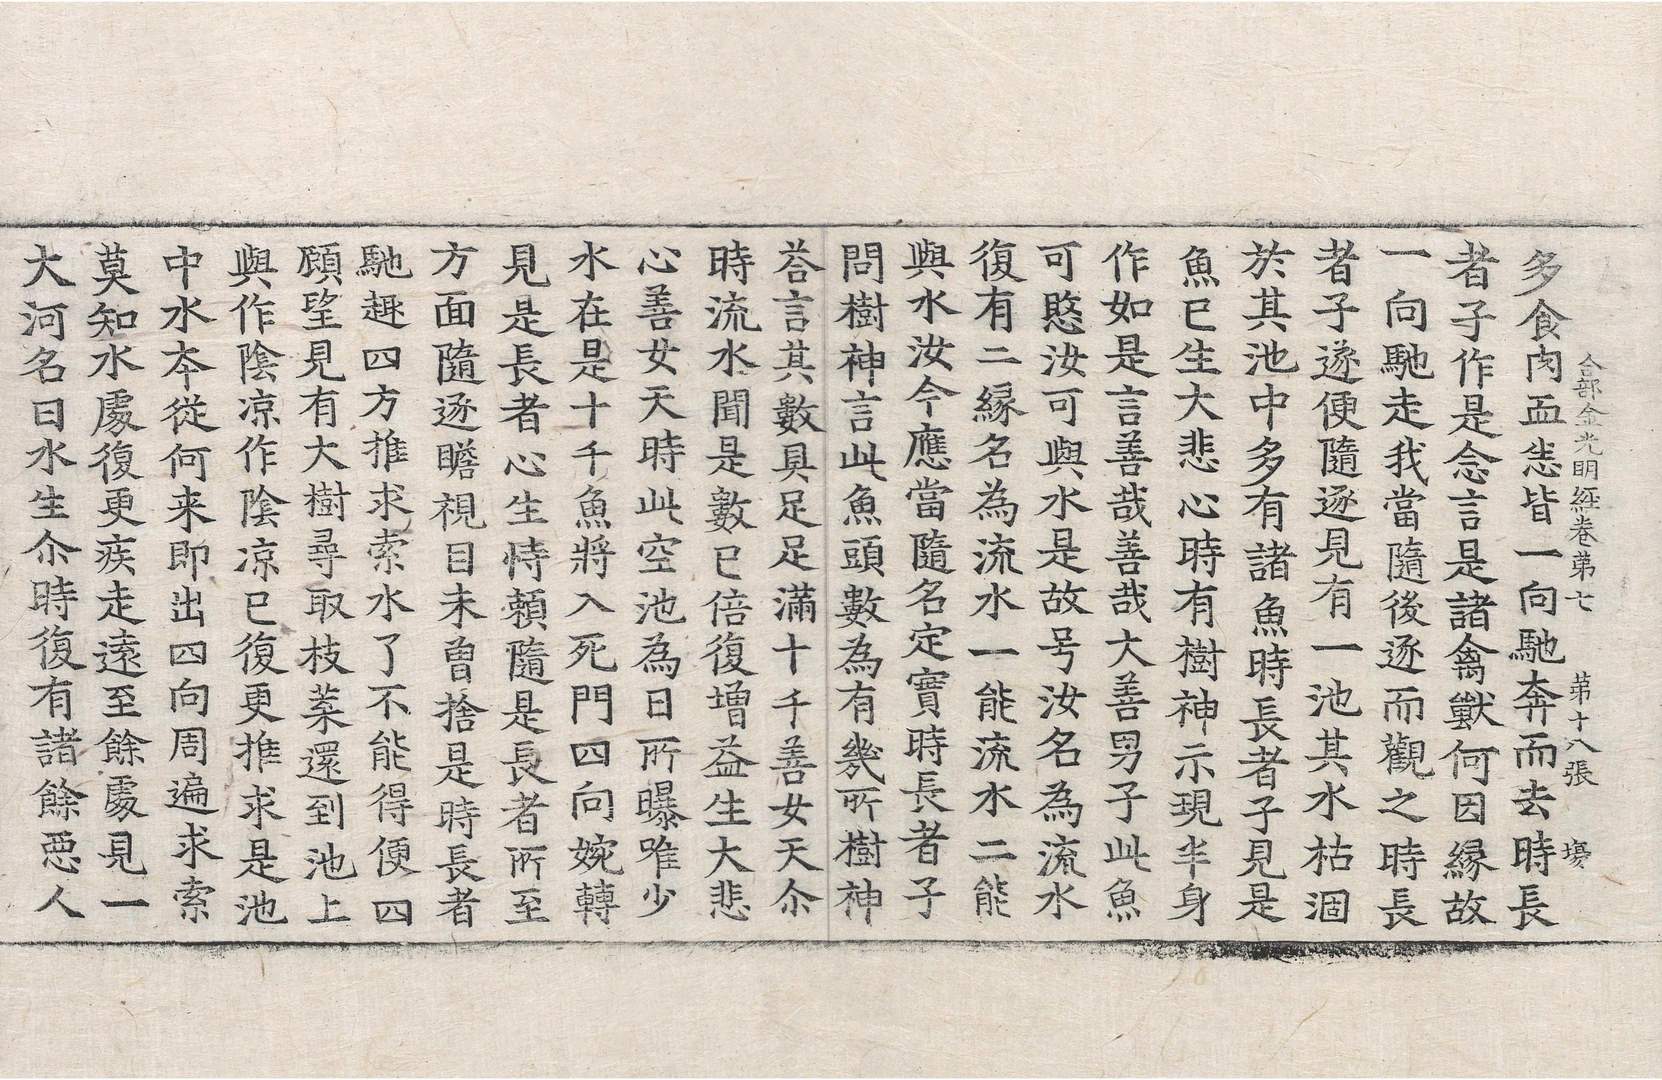 合部金光明經卷苐七　苐十八張　塲
多食肉血悉皆一向馳奔而去時長
者子作是念言是諸禽獸何因縁故
一向馳走我當隨後逐而觀之時長
者子遂便隨逐見有一池其水枯涸
於其池中多有諸魚時長者子見是
魚已生大悲心時有樹神示現半身
作如是言善哉善哉大善男子此魚
可愍汝可與水是故号汝名為流水
復有二縁名為流水一能流水二能
與水汝今應當隨名定實時長者子
問樹神言此魚頭數為有幾所樹神
荅言其數具足足滿十千善女天尒
時流水聞是數已倍復增益生大悲
心善女天時此空池為日所曝唯少
水在是十千魚將入死門四向婉轉
見是長者心生恃賴隨是長者所至
方面隨逐瞻視目未曾捨是時長者
馳趣四方推求索水了不能得便四
顧望見有大樹尋取枝葉還到池上
與作陰凉作陰凉已復更推求是池
中水本從何来即出四向周遍求索
莫知水處復更疾走遠至餘處見一
大河名曰水生尒時復有諸餘惡人